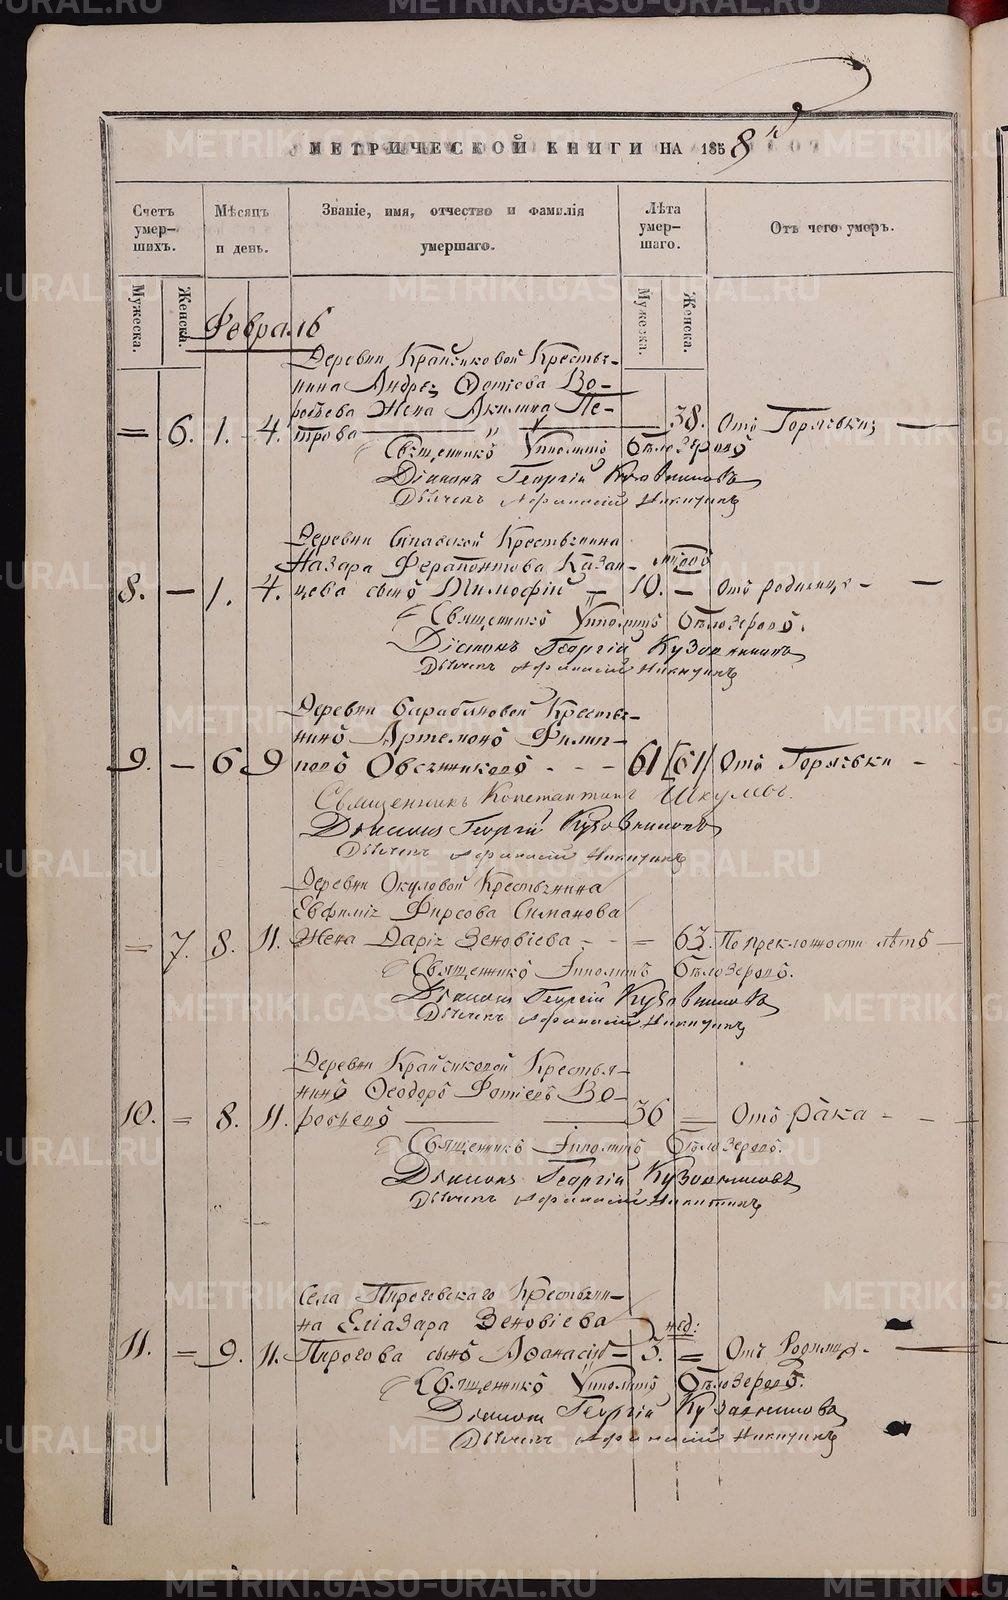 МЕТРИЧЕСКОЙ КНИГИ НА 1858й
Счетъ умер-шихъ. Мѣсяцъ и день. Званіе, имя, отчество и фамилія умершаго. Лѣта умер-шаго. Отъ чего умеръ.
Мужеска. Женска. Мужеска. Женска.
Февраль
Деревни Крайчиковой Крестья-
нина Андрея Фотіева Во-
робьева Жена Акилина Пе-
= 6. 1. 4. трова — " — 38. Отъ Горячки —
Священникъ Ипполитъ Бѣлозеровъ
Діаконъ Георгій Кузовниковъ
Дьячекъ Афанасій Никитинъ
Деревни Крестьянина
Назара Ферапонтова Казан- мѣсяцъ
8. — 1. 4. цева сынъ Тимофій — 10. — Отъ родимца — —
Священникъ Ипполитъ Бѣлозеровъ.
Діаконъ Георгій Кузовниковъ
Дьячекъ Афанасій Никитинъ
Деревни Барабановой Крестья-
нинъ Артемонъ Филип-
9. — 6 9 повъ Овсянниковъ - - - 61 [61] Отъ Горячки - -
Священникъ Константинъ
Діаконъ Георгій Кузовниковъ
Дьячекъ Афанасій Никитинъ
Деревни Окуловой Крестьянина
Евфимія Фирсова Симанова
= 7. 8. 11. Жена Дарія Зеновіева - - = 63. По преклонности лѣтъ —
Священникъ Ипполитъ Бѣлозеровъ.
Діаконъ Георгій Кузовниковъ
Дьячекъ Афанасій Никитинъ
Деревни Крайчиковой Крестья-
нинъ Ѳеодоръ Фотіевъ Во-
10. = 8. 11. робьевъ — — 36 = Отъ Рака - -
Священникъ Ипполитъ Бѣлозеровъ.
Діаконъ Георгій Кузовниковъ
Дьячекъ Афанасій Никитинъ
Села Пироговскаго Крестьяни-
на Еліазара Зеновіева нед:
11. = 9. 11. Пирогова сынъ Аѳанасій — 3. = Отъ Родимца - —
Священникъ Ипполитъ Бѣлозеровъ.
Діаконъ Георгій Кузовниковъ
Дьячекъ Афанасій Никитинъ
METRIKI.GASO-URAL.RU